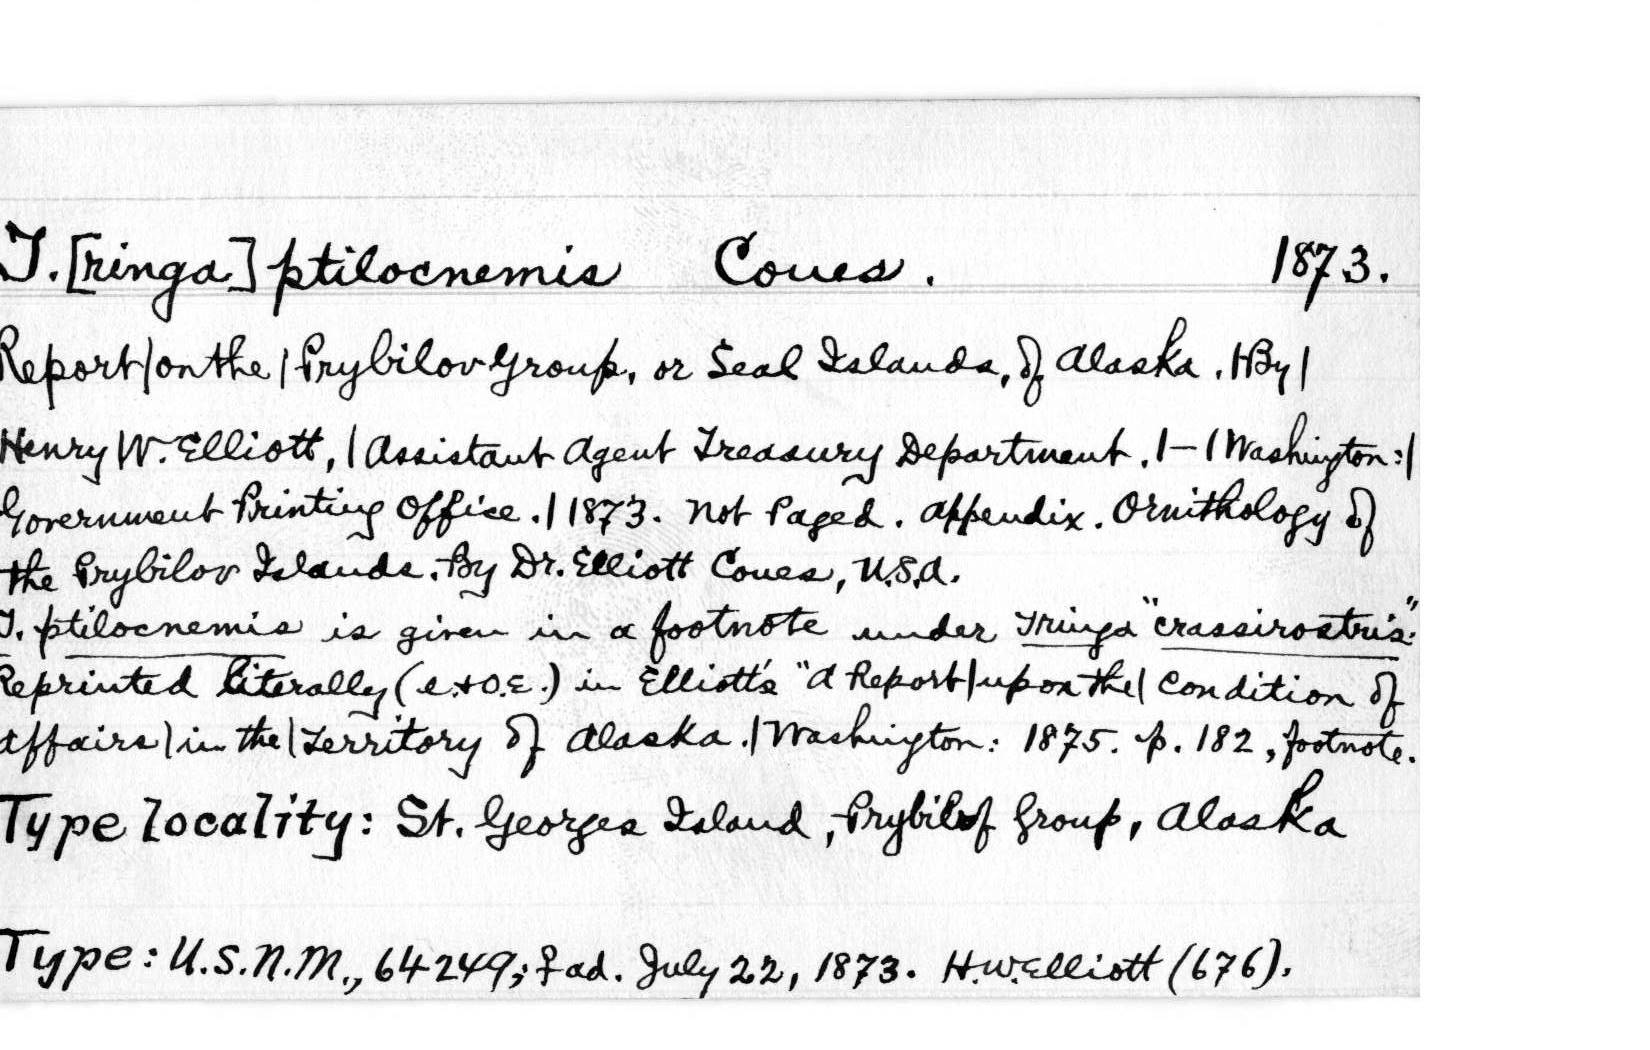 T.[ringa] ptilocnemis Coues. 1873.
Report|on the|Prybilov Group, or Seal Islands, of Alaska.|By|
Henry W. Elliott,|Assistant Agent Treasury Department.|-|Washington:|
Government Printing Office.|1873. Not Paged. Appendix. Ornithology of
the Prybilov Islands. By Dr. Elliott Coues, U.S.A.
T. ptilocnemis is given in a footnote under Tringa "crassirostris".
Reprinted literally (e.&O.E.) in Elliott's "A Report|upon the|Condition of
Affairs|in the|Territory of Alaska.|Washington: 1875. p. 182, footnote.
Type locality: St. Georges Island, Prybilof Group, Alaska
Type: U.S.N.M., 64249; ♀ ad. July 22, 1873. H.W. Elliott (676).